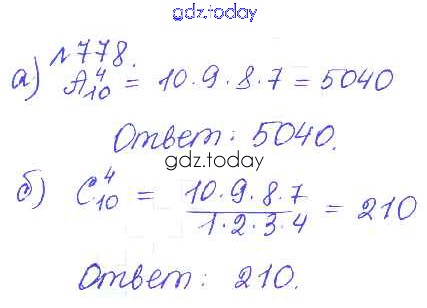 gdz.today
№778.
а) A⁴₁₀ = 10·9·8·7 = 5040
Ответ: 5040.
gdz.today
б) C⁴₁₀ = 10·9·8·7 / 1·2·3·4 = 210
Ответ: 210.